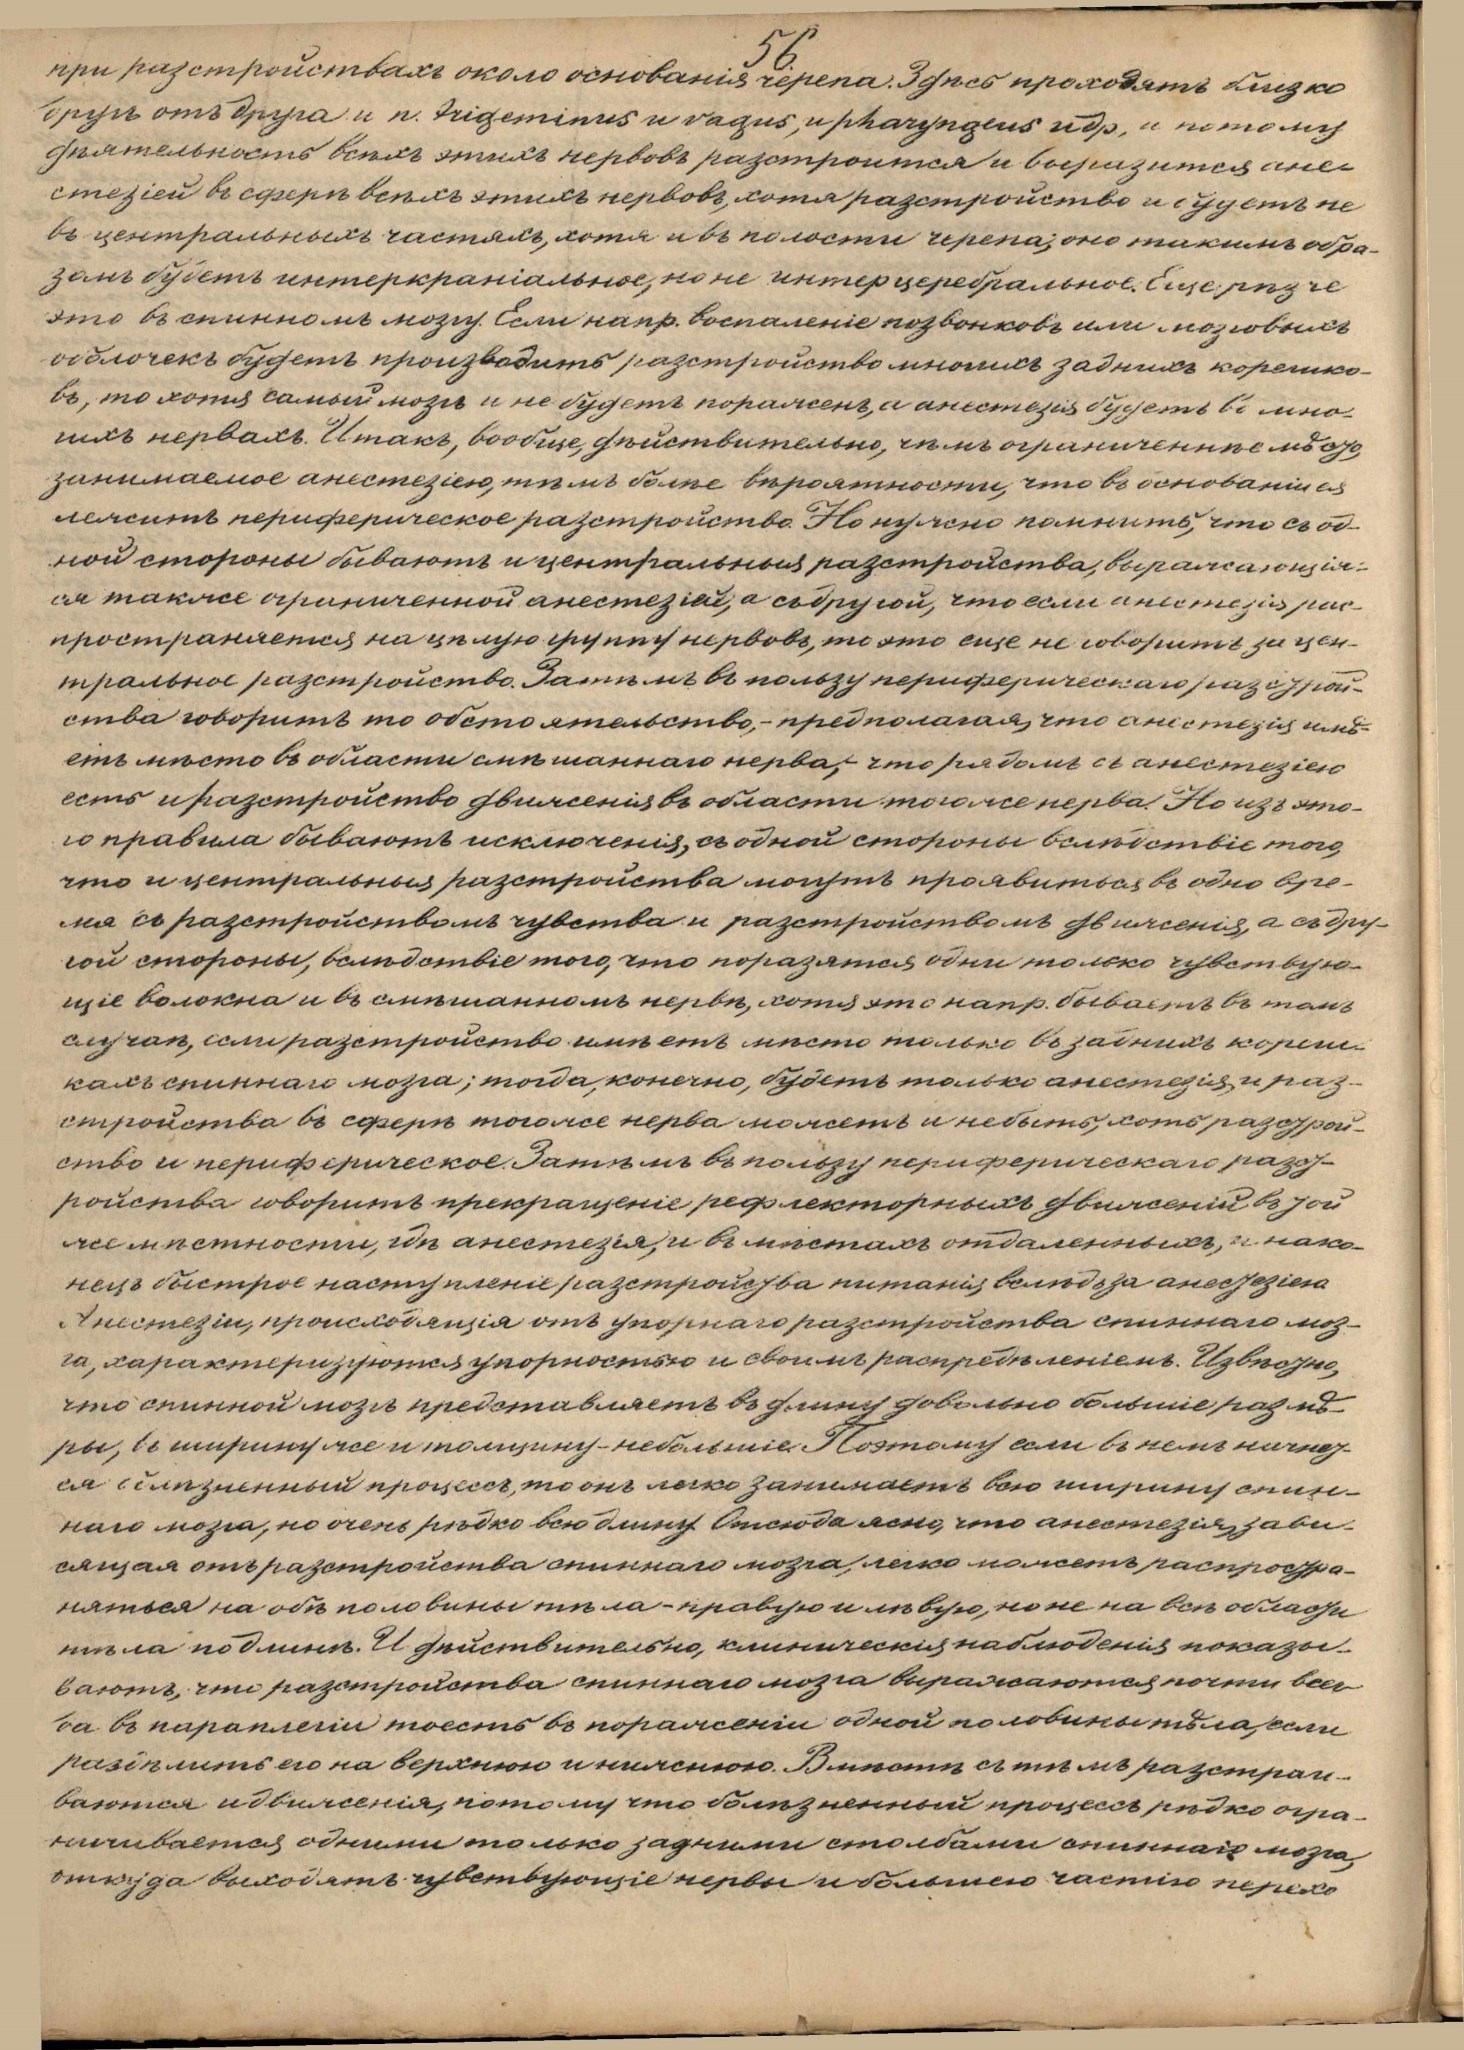 56.
при разстройствахъ около основанія черепа. Здѣсь проходятъ близко
другъ отъ друга и n. trigeminus и vagus, и pharyngeus и др., и потому
дѣятельность всѣхъ этихъ нервовъ разстроится и выразится ане-
стезіей въ сферѣ всѣхъ этихъ нервовъ, хотя разстройство и будетъ не
въ центральныхъ частяхъ, хотя и въ полости черепа; оно такимъ обра-
зомъ будетъ интеркраніальное, но не интерцеребральное. Еще рѣзче
это въ спинномъ мозгу. Если напр. воспаленіе позвонковъ или мозговыхъ
оболочекъ будетъ производить разстройство многихъ заднихъ корешко-
въ, то хотя самый мозгъ и не будетъ пораженъ, а анестезія будетъ во мно-
гихъ нервахъ. Итакъ, вообще, дѣйствительно, чѣмъ ограниченнѣе мѣсто,
занимаемое анестезіею, тѣмъ болѣе вѣроятности, что въ основаніи ея
лежитъ периферическое разстройство. Но нужно помнить, что съ од-
ной стороны бываютъ и центральныя разстройства, выражающія-
ся также ограниченной анестезіей, а съ другой, что если анестезія рас-
пространяется на цѣлую группу нервовъ, то это еще не говоритъ за цен-
тральное разстройство. Затѣмъ въ пользу периферическаго разстрой-
ства говоритъ то обстоятельство,- предполагая, что анестезія имѣ-
етъ мѣсто въ области смѣшаннаго нерва,- что рядомъ съ анестезіею
есть и разстройство движенія въ области того же нерва. Но изъ это-
го правила бываютъ исключенія, съ одной стороны вслѣдствіе того,
что и центральныя разстройства могутъ проявиться въ одно вре-
мя съ разстройствомъ чувства и разстройствомъ движенія, а съ дру-
гой стороны, вслѣдствіе того, что поразятся одни только чувствую-
щіе волокна и въ смѣшанномъ нервѣ, хотя это напр. бываетъ въ томъ
случаѣ, если разстройство имѣетъ мѣсто только въ заднихъ кореш-
кахъ спиннаго мозга; тогда, конечно, будетъ только анестезія, и раз-
стройства въ сферѣ того же нерва можетъ и не быть, хоть разстрой-
ство и периферическое. Затѣмъ въ пользу периферическаго разст-
ройства говоритъ прекращеніе рефлекторныхъ движеній въ той
же мѣстности, гдѣ анестезія, и въ мѣстахъ отдаленныхъ, и нако-
нецъ быстрое наступленіе разстройства питанія вслѣдъ за анестезіею
Анестезіи, происходящія отъ упорнаго разстройства спиннаго моз-
га, характеризуются упорностью и своимъ распредѣленіемъ. Извѣстно,
что спинной мозгъ представляетъ въ длину довольно большіе размѣ-
ры, въ ширину же и толщину - небольшіе. Поэтому если въ немъ начнет-
ся болѣзненный процессъ, то онъ легко занимаетъ всю ширину спин-
наго мозга, но очень рѣдко всю длину. Отсюда ясно, что анестезія, зави-
сящая отъ разстройства спиннаго мозга, легко можетъ распростра-
няться на обѣ половины тѣла - правую и лѣвую, но не на всѣ области
тѣла по длинѣ. И дѣйствительно, клиническія наблюденія показы-
ваютъ, что разстройства спиннаго мозга выражаются почти всег-
да въ параплегіи тоесть въ пораженіи одной половины тѣла, если
раздѣлить его на верхнюю и нижнюю. Вмѣстѣ съ тѣмъ разстраи-
ваются и движенія, потому что болѣзненный процессъ рѣдко огра-
ничивается одними только задними столбами спиннаго мозга,
откуда выходятъ чувствующіе нервы и большею частію перехо